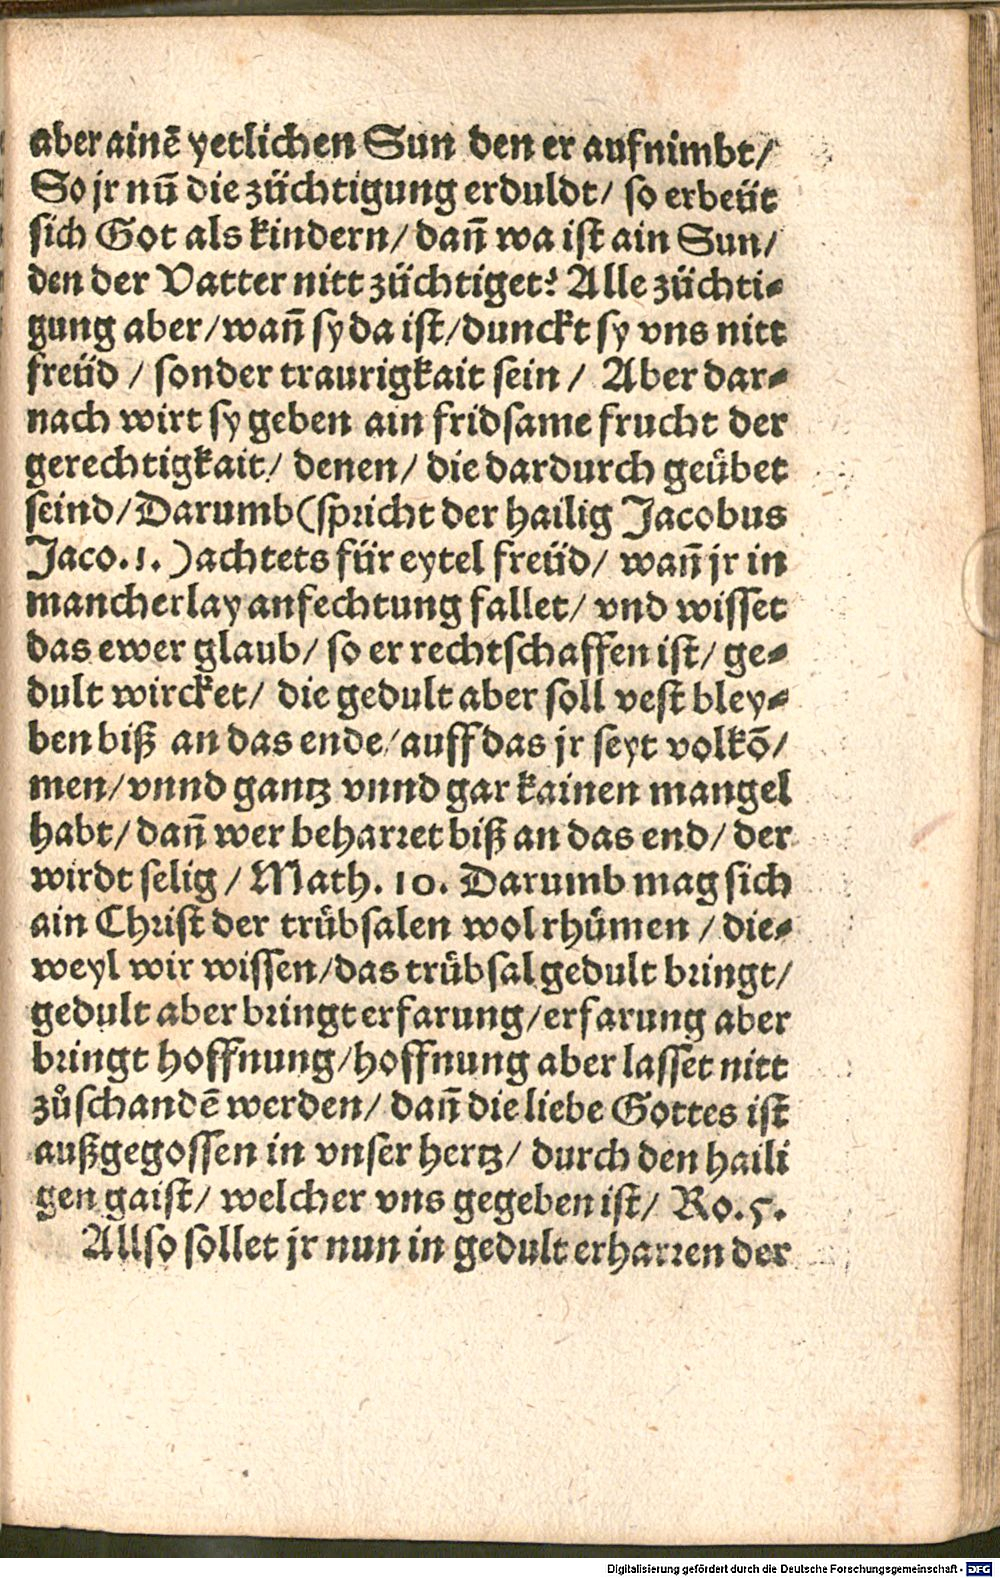 aber ainē yetlichen Sun den er aufnimbt/
So jr nū die züchtigung erduldt/ so erbeüt
sich Got als kindern/ dañ wa ist ain Sun/
den der Vatter nitt züchtiget? Alle züchti-
gung aber/wañ sy da ist/dunckt sy vns nitt
freüd / sonder traurigkait sein / Aber dar-
nach wirt sy geben ain fridsame frucht der
gerechtigkait/ denen/ die dardurch geübet
seind/Darumb(spricht der hailig Jacobus
Jaco.1.)achtets für eytel freüd/ wañ jr in
mancherlay anfechtung fallet/ vnd wisset
das ewer glaub/ so er rechtschaffen ist/ ge-
dult wircket/ die gedult aber soll vest bley-
ben biß an das ende/auff das jr seyt volkō/
men/vnnd gantz vnnd gar kainen mangel
habt/dañ wer beharret biß an das end/ der
wirdt selig / Math. 10. Darumb mag sich
ain Christ der trübsalen wol rhümen / die-
weyl wir wissen/das trübsal gedult bringt/
gedult aber bringt erfarung/erfarung aber
bringt hoffnung/hoffnung aber lasset nitt
zůschandē werden/ dañ die liebe Gottes ist
außgegossen in vnser hertz/ durch den haili
gen gaist/ welcher vns gegeben ist/ Ro.5.
Allso sollet jr nun in gedult erharren der
Digitalisierung gefördert durch die Deutsche Forschungsgemeinschaft - DFG